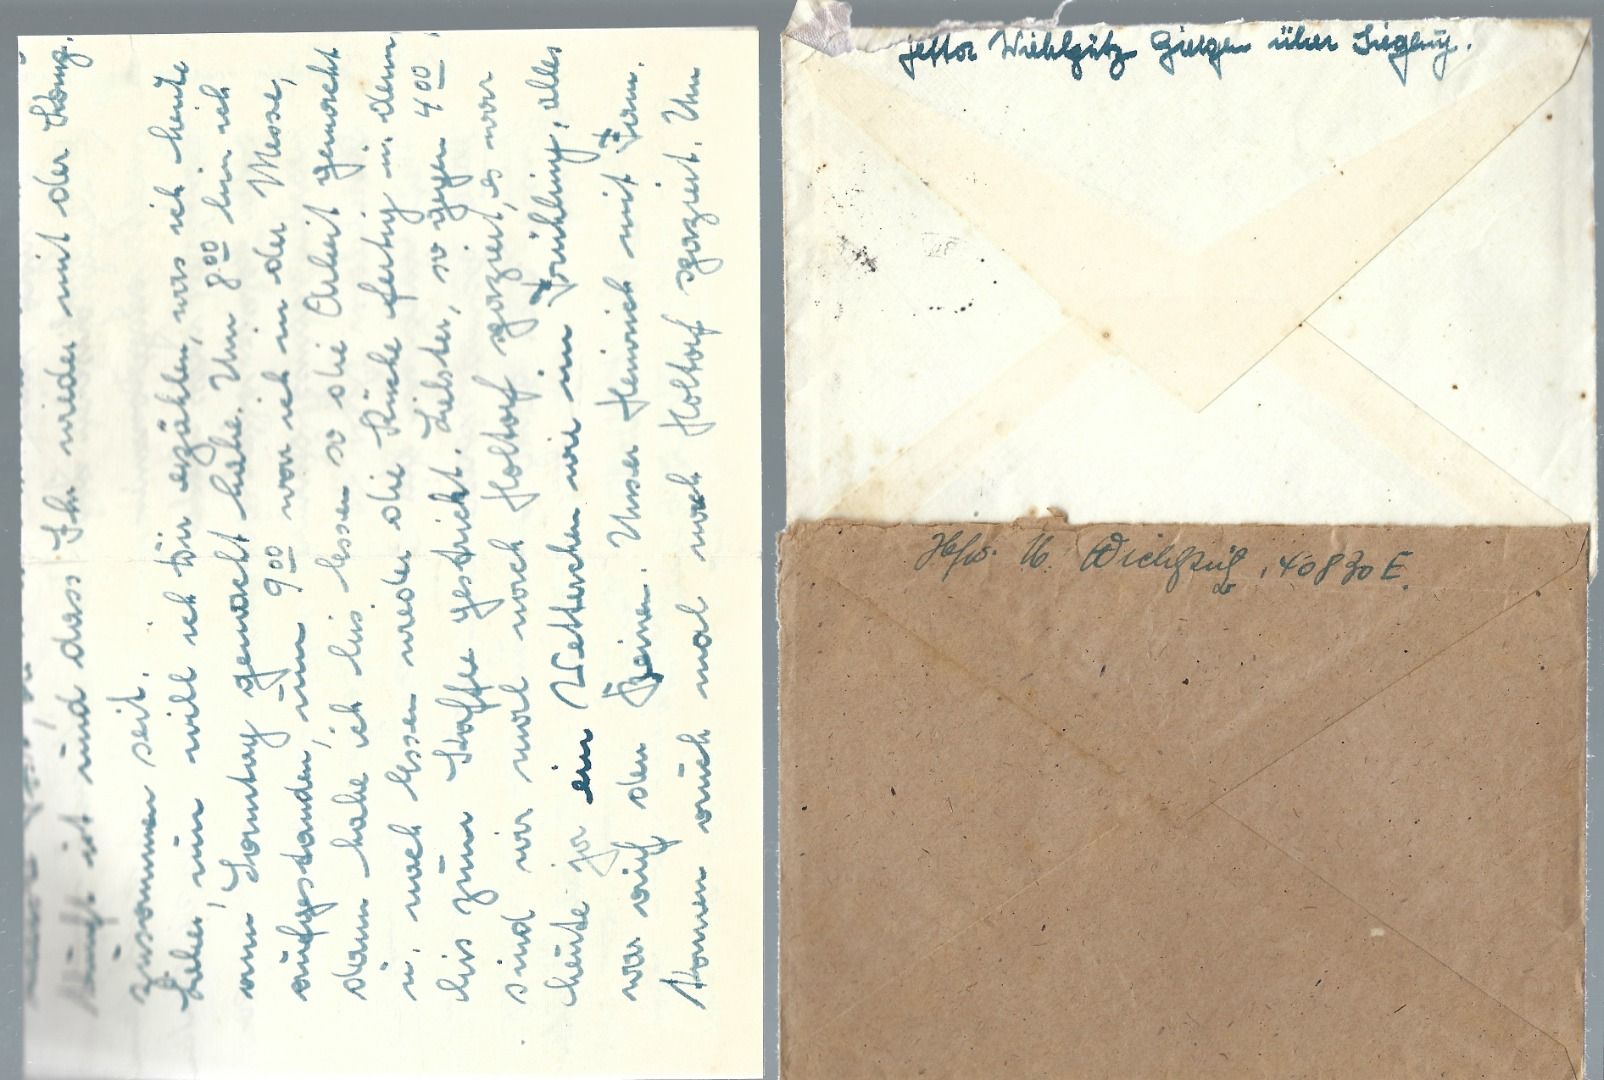 Kunft ist und dass Ihr wieder mit der König.
zusammen seit.
Lieber, nun will ich Dir erzählen, was ich heute
am Sonntag gemacht habe. Um 8 00 bin ich
aufgestanden, um 9 00 war ich in der Messe,
dann habe ich bis Essen so die Arbeit gemacht
u. nach Essen wieder die Küche fertig u. dann
bis zum Kaffee gestrickt. Liebster, so gegen 4 00
sind wir mal nach Holtorf spaziert, es war
heute ja ein Wetterchen wie im Frühling, alles
war auf den Beinen. Unser Heinrich mit Fam.
kamen auch mal nach Holtorf spaziert. Um
Jettor Wiehlpütz Gielgen über Siegburg.
Hfw. W. Wiehlpütz, 40830 E.